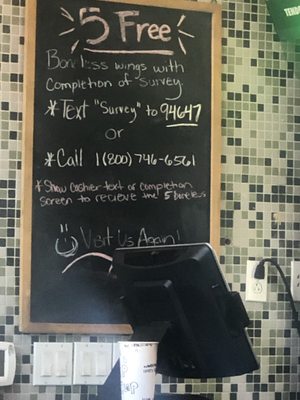 5 Free
Boneless wings with
Completion of survey
*Text "Survey" to 94647
or
*Call 1(800) 746-6561
*Show cashier text or completion
screen to recieve the 5 Boneless
Visit Us Again!
TENDE